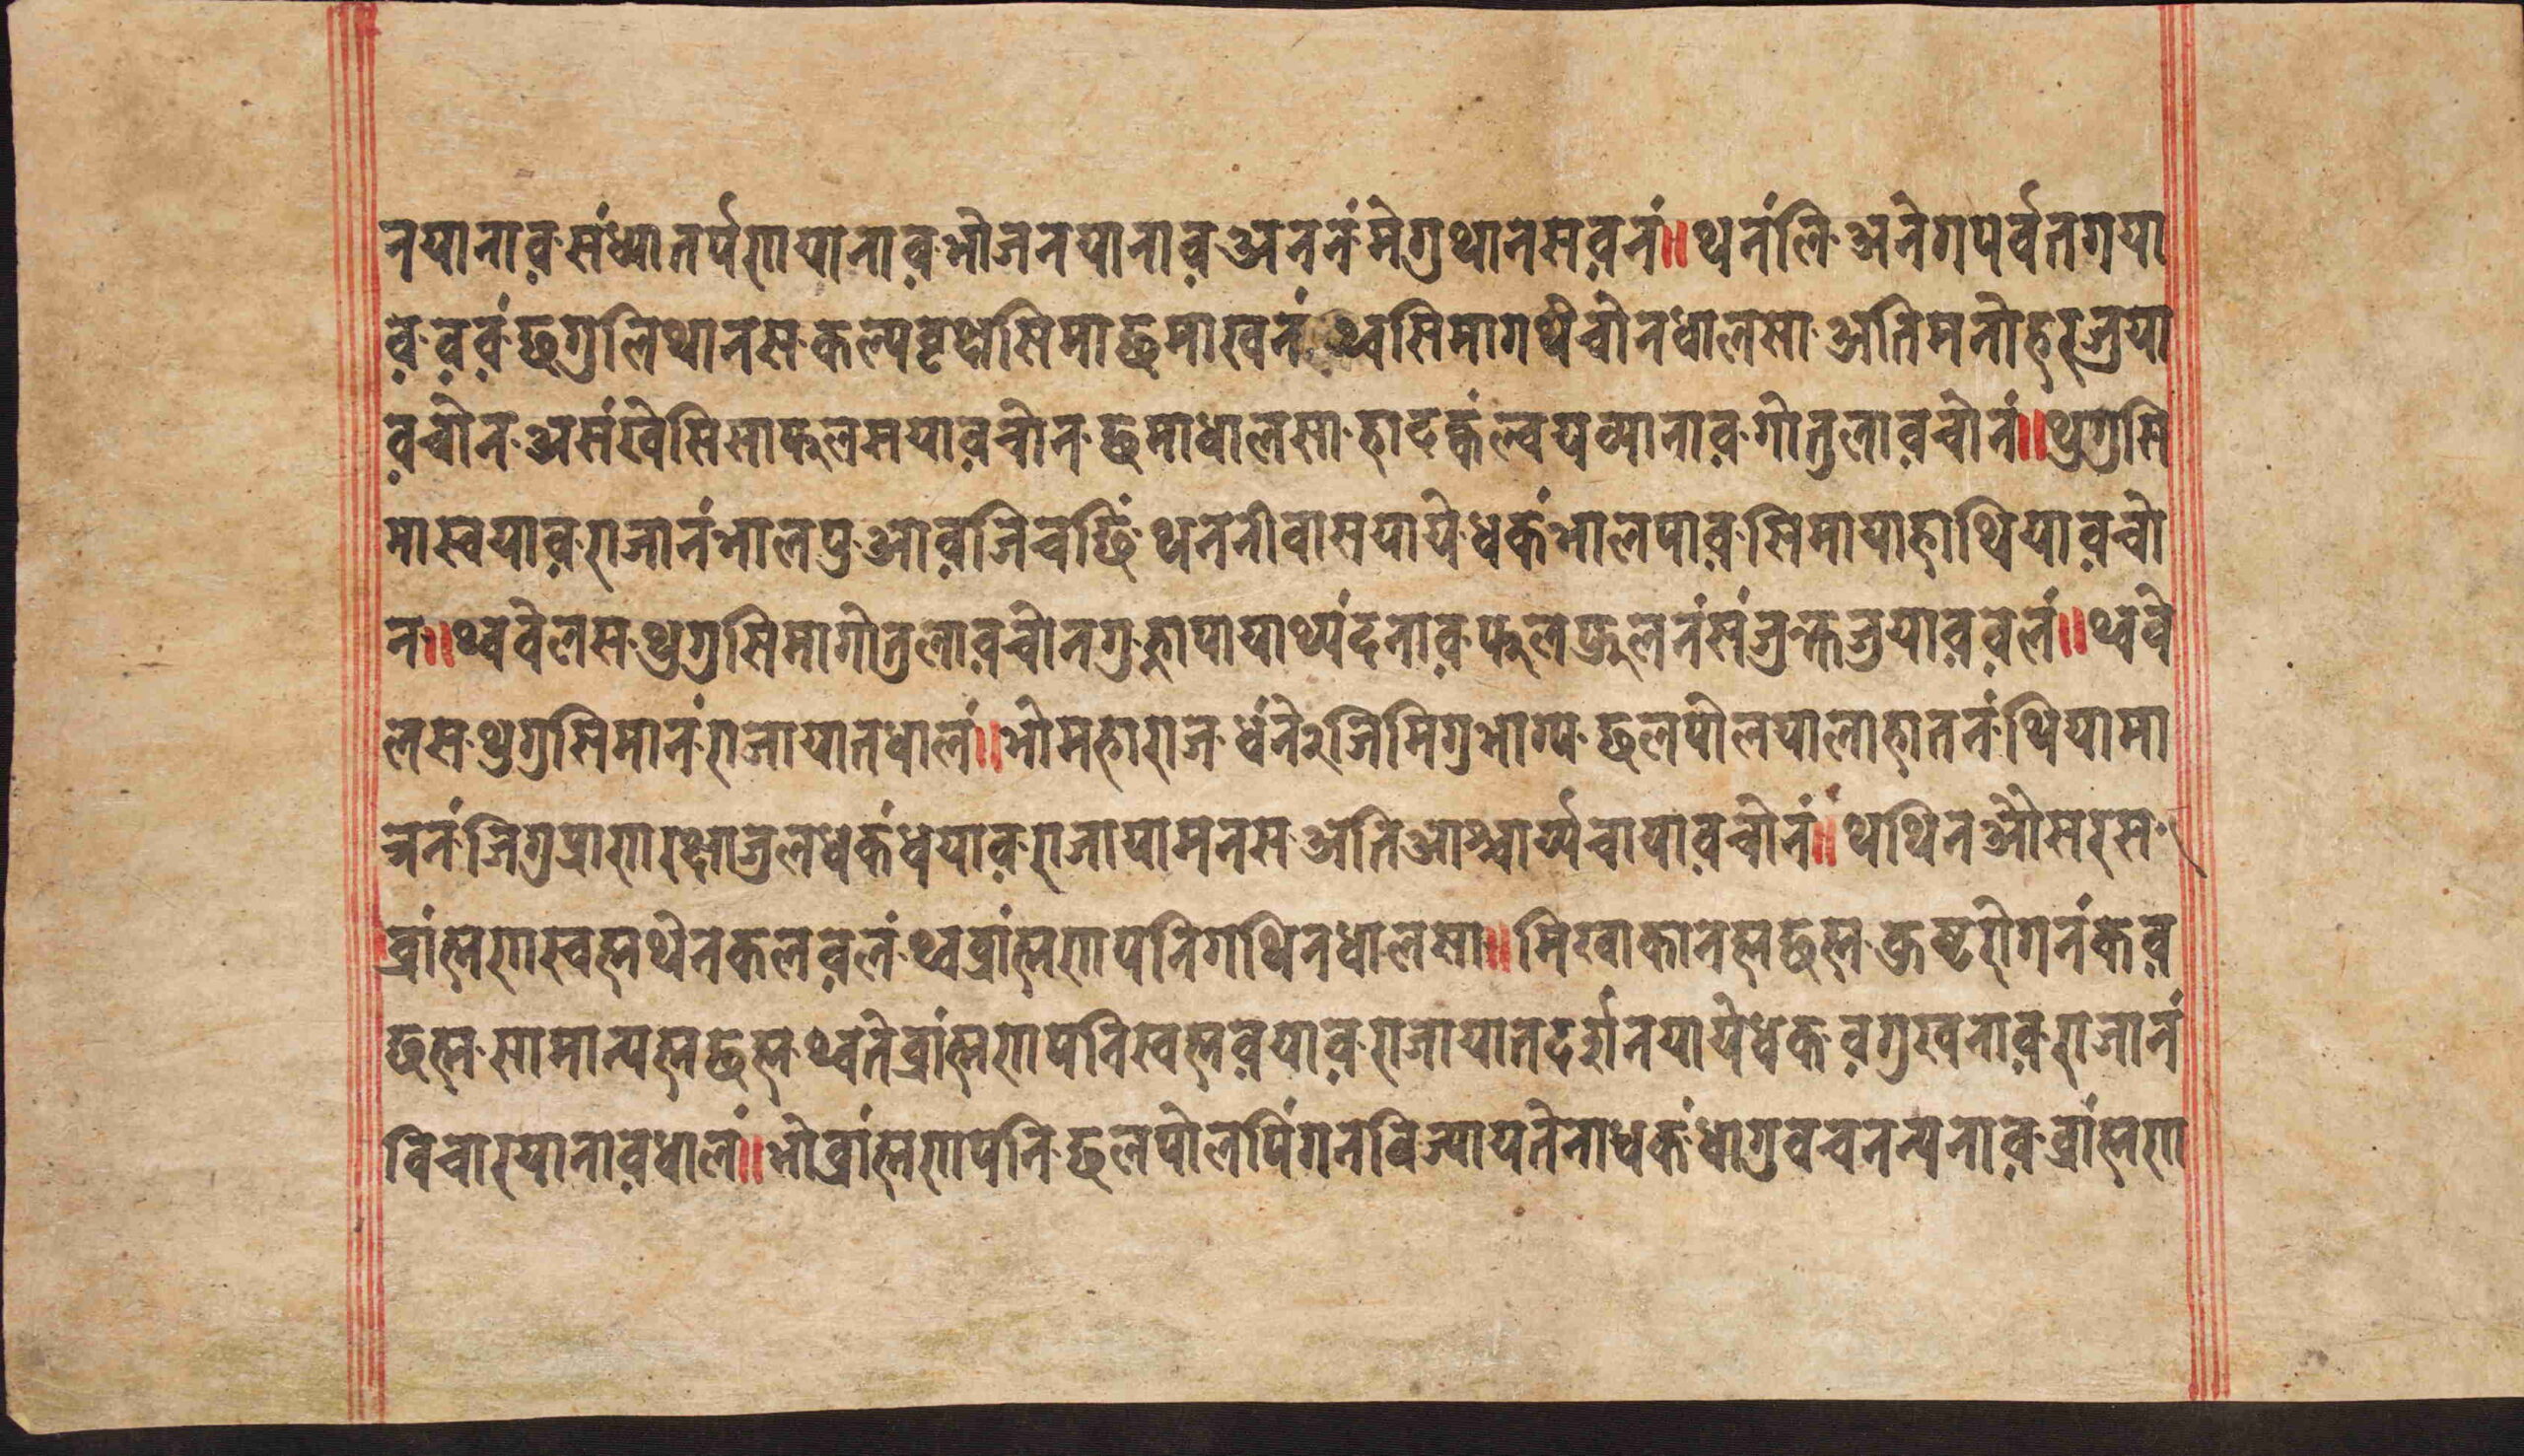 नयानाव संध्यातर्पणयानाव भोजनयानाव अननं मेगुथानसवनं॥ थनंलि अनेगपर्वतगया
व ववं छगुलिथानस कल्पबृक्षसिमाछमाखनं थ्वसिमागथेंचोनधालसा अतिमनोहरजुया
वचोन असंखेसिसाफुलसयावचोन छमाधालसा हादकंल्वयव्यानाव गोतुलावचोनं॥ थुगुसि
मास्वयाव राजानंभालपु आवजिचछिं थननीवासयाये धकंभालपाव सिमायाहाथियावचो
न॥ थ्ववेलस थुगुसिमागोतुलावचोनगु हापायाथ्यंदनाव फुलफुलनंसंजुक्तजुयाववलं॥ थ्ववे
लस थुगुसिमानं राजायातधालं॥ भोमहाराज धंने२जिमिगुभाग्य छलपोलयालाहातनं थियामा
त्रनं जिगुप्राणरक्षाजुलधकंधयाव राजायामनस अतिआश्चार्य्यचायावचोनं॥ थथिनऔसरस
ब्रांह्मणस्वह्मथेनकलवलं थ्वब्रांह्मणपनिगथिनधालसा॥ मिखाकानह्मछह्म कष्टरोगनंकेव
छह्म सामान्यह्मछह्म थ्वतेब्रांह्मणपनिस्वह्मवयाव राजायातदर्शनयायेधक वगुखनाव राजानं
विचारयानावधालं॥ भोब्रांह्मणपनि छलपोलपिंगनबिज्यायतेनाधकंधागुवचनन्यनाव ब्रांह्मण